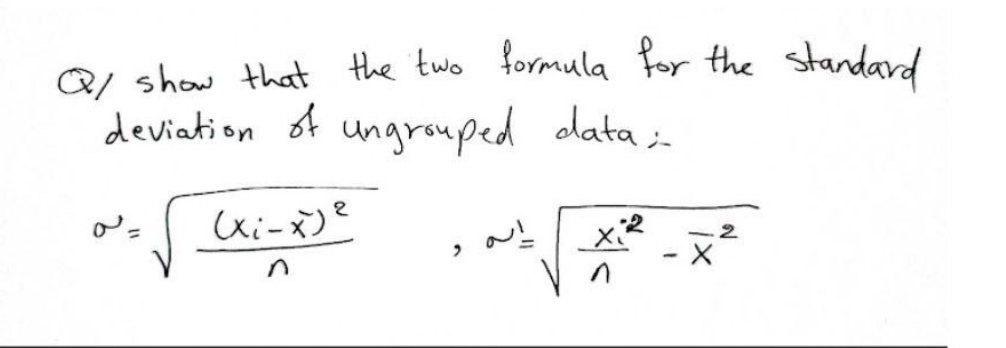 Q/ show that the two formula for the standard
deviation of ungrouped data :-
σ = √((xi - x̄)² / n) , σ' = √(xi² / n - x̄²)